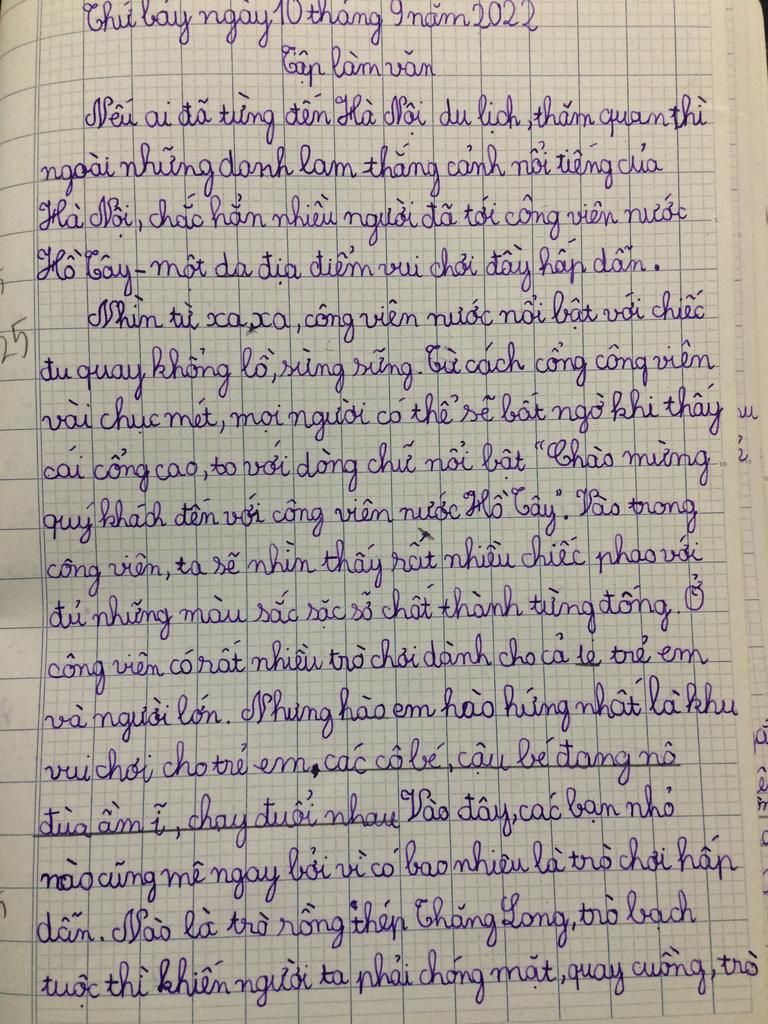 Thứ bảy ngày 10 tháng 9 năm 2022
Tập làm văn
Nếu ai đã từng đến Hà Nội du lịch, thăm quan thì
ngoài những danh lam thắng cảnh nổi tiếng của
Hà Nội, chắc hẳn nhiều người đã tới công viên nước
Hồ Tây - một da địa điểm vui chơi đầy hấp dẫn.
Nhìn từ xa, xa, công viên nước nổi bật với chiếc
đu quay khổng lồ, sừng sững. Từ cách cổng công viên
vài chục mét, mọi người có thể sẽ bất ngờ khi thấy
cái cổng cao, to với dòng chữ nổi bật "Chào mừng
quý khách đến với công viên nước Hồ Tây". Vào trong
công viên, ta sẽ nhìn thấy rất nhiều chiếc phao với
đủ những màu sắc sặc sỡ chất thành từng đống. Ở
công viên có rất nhiều trò chơi dành cho cả lẻ trẻ em
và người lớn. Nhưng hào em hào hứng nhất là khu
vui chơi cho trẻ em. các cô bé, cậu bé đang nô
đùa ầm ĩ, chạy đuổi nhau Vào đây, các bạn nhỏ
nào cũng mê ngay bởi vì có bao nhiêu là trò chơi hấp
dẫn. Nào là trò rồng thép Thăng Long, trò bạch
tuộc thì khiến người ta phải chóng mặt, quay cuồng, trò
25